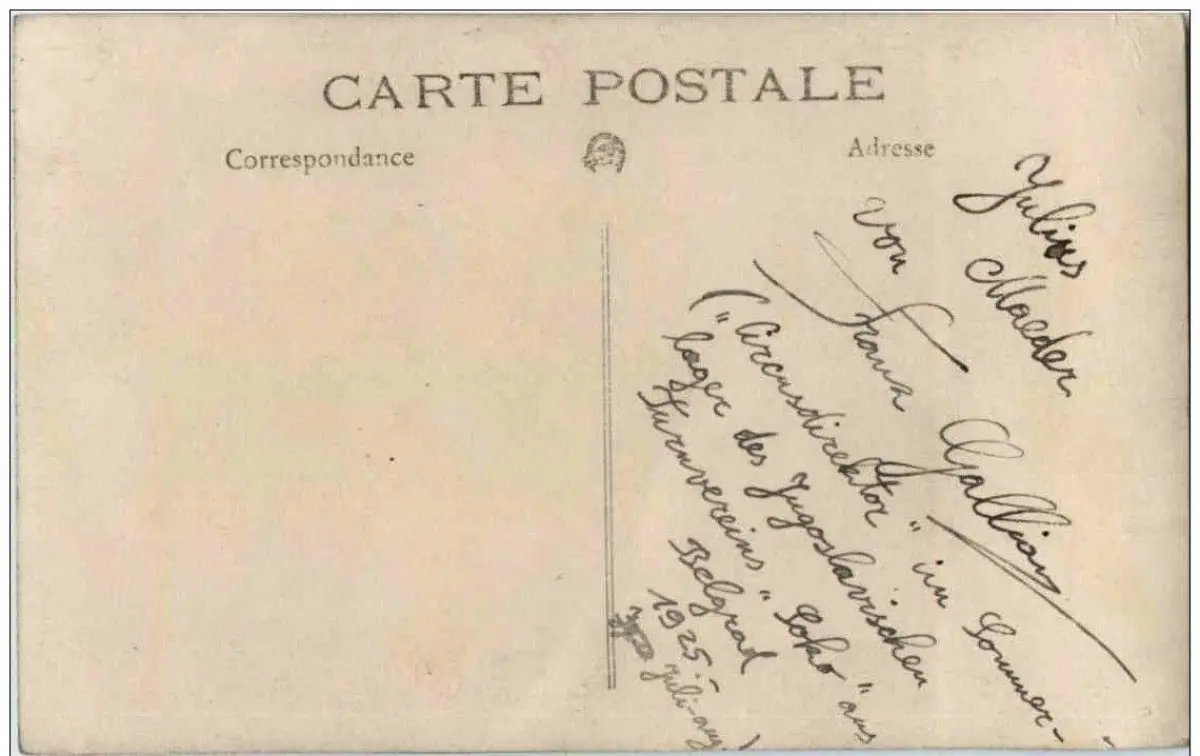 CARTE POSTALE
Correspondance
Adresse
Julius
Maeder
von
Franz
("Circusdirektor" im Sommer-
lager des Jugoslavischen
Turnvereins "Soko" aus
Belgrad
1925.-
Juli-Aug)